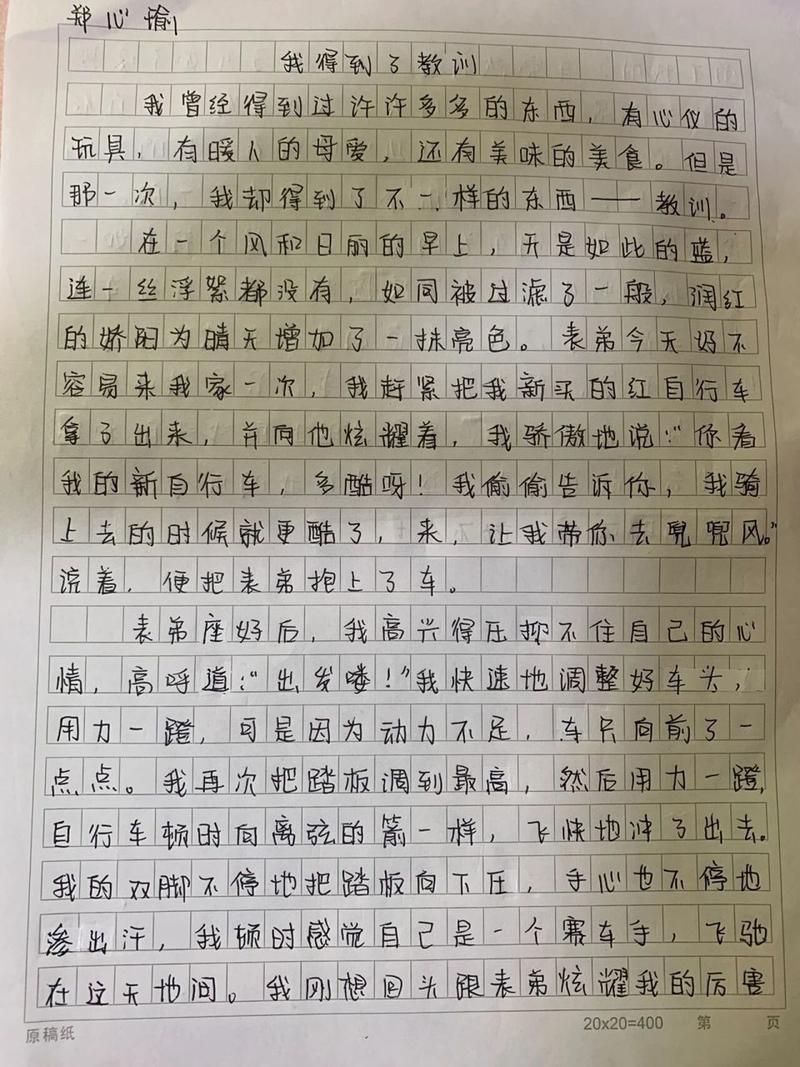 郑心愉
我得到了教训
我曾经得到过许许多多的东西，有心仪的
玩具，有暖人的母爱，还有美味的美食。但是
那一次，我却得到了不一样的东西——教训。
在一个风和日丽的早上，天是如此的蓝，
连一丝浮絮都没有，如同被过滤了一般，润红
的娇阳为晴天增加了一抹亮色。表弟今天好不
容易来我家一次，我赶紧把我新买的红自行车
拿了出来，并向他炫耀着，我骄傲地说：“你看
我的新自行车，多酷呀！我偷偷告诉你，我骑
上去的时候就更酷了，来，让我带你去兜兜风。”
说着，便把表弟抱上了车。
表弟座好后，我高兴得压抑不住自己的心
情，高呼道：“出发喽！”我快速地调整好车头，
用力一蹬，可是因为动力不足，车只向前了一
点点。我再次把踏板调到最高，然后用力一蹬，
自行车顿时向离弦的箭一样，飞快地冲了出去。
我的双脚不停地把踏板向下压，手心也不停地
渗出汗，我顿时感觉自己是一个赛车手，飞驰
在这天地间。我刚想回头跟表弟炫耀我的厉害
原稿纸
20x20=400 第 页